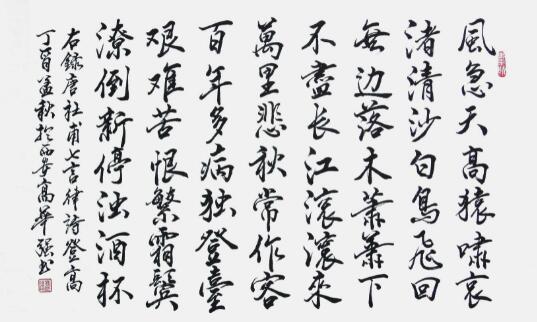 風急天高猿嘯哀
渚清沙白鳥飛回
無边落木萧萧下
不盡長江滾滾来
萬里悲秋常作客
百年多病独登臺
艰难苦恨繁霜鬓
潦倒新停浊酒杯
右録唐杜甫七言律诗登高
丁酉孟秋於西安高華强书